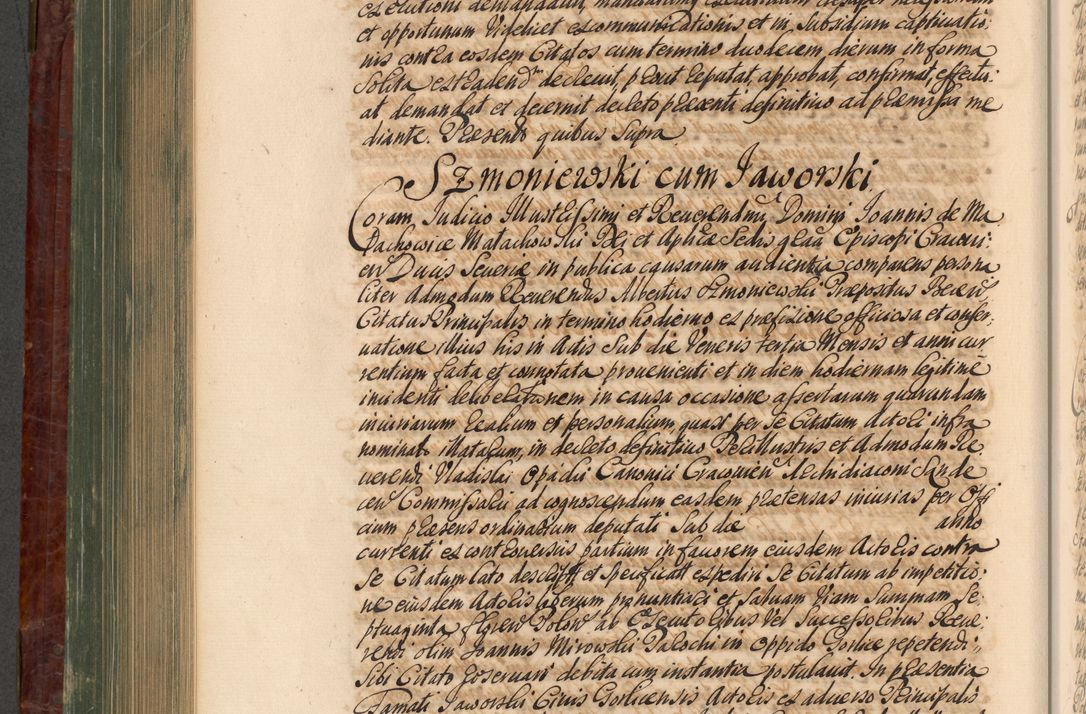 et opportunum Videlicet excommunicationis et in Subsidium captivatio-
nis contra eosdem Citatos cum termino duodecem dierum in forma
Solita extradend decrevit, prout reputat, approbat, confirmat, effectu-
at demandat et decernit decreto praesenti definitivo ad praemissa me
diante. Praesente quibus Supra
Szmoniewski cum Jaworski
Coram Judicio Illustrissimi et Reverendmi Domini Joannis de Ma
Pachowice Małachowski Dei et Aplicae Sedis graa Episcopi Cracovi-
en Ducis Severiae in publica causarum audientia comparens persona
liter Admodum Reverendus Albertus Szmoniewski Praepositus Becen
Citatus Principalis in termino hodierno ex praefixione officiosa et conser-
vatione illius his in Actis Sub die Veneris tertia Mensis et anni cur
rentium facta et connotata provenienti et in diem hodiernam legitimè
incidenti deliberationem in causa occasione assertarum quarundam
iniuriarum realium et personalium quasi per Se Citatum Actori infra
nominato illatarum, in decreto definitivo Perillustris et Admodum Re
verendi Vladislai Opacki Canonici Cracovien Archidiaconi Sande
cen Commissarii ad cognoscendum easdem praetensas iniurias per Offi
cium praesens ordinarium deputati Sub die anno
currenti ex controversiis partium in favorem eiusdem Actoris contra
Se Citatum lato descript et specificatt expediri Se Citatum ab impetitio-
ne eiusdem Actoris liberum pronuntiari et Salvam Viam Summam Se-
ptuaginta floren Polon ab Executoribus Vel Successoribus Reve-
rendi olim Joannis Mirowski Parochi in Oppido Gorlice repetendi
Sibi Citato reservari debita cum instantia postulavit. In praesentia
Famati Jaworski Civis Gorlicensis Actoris ex adverso Principalis